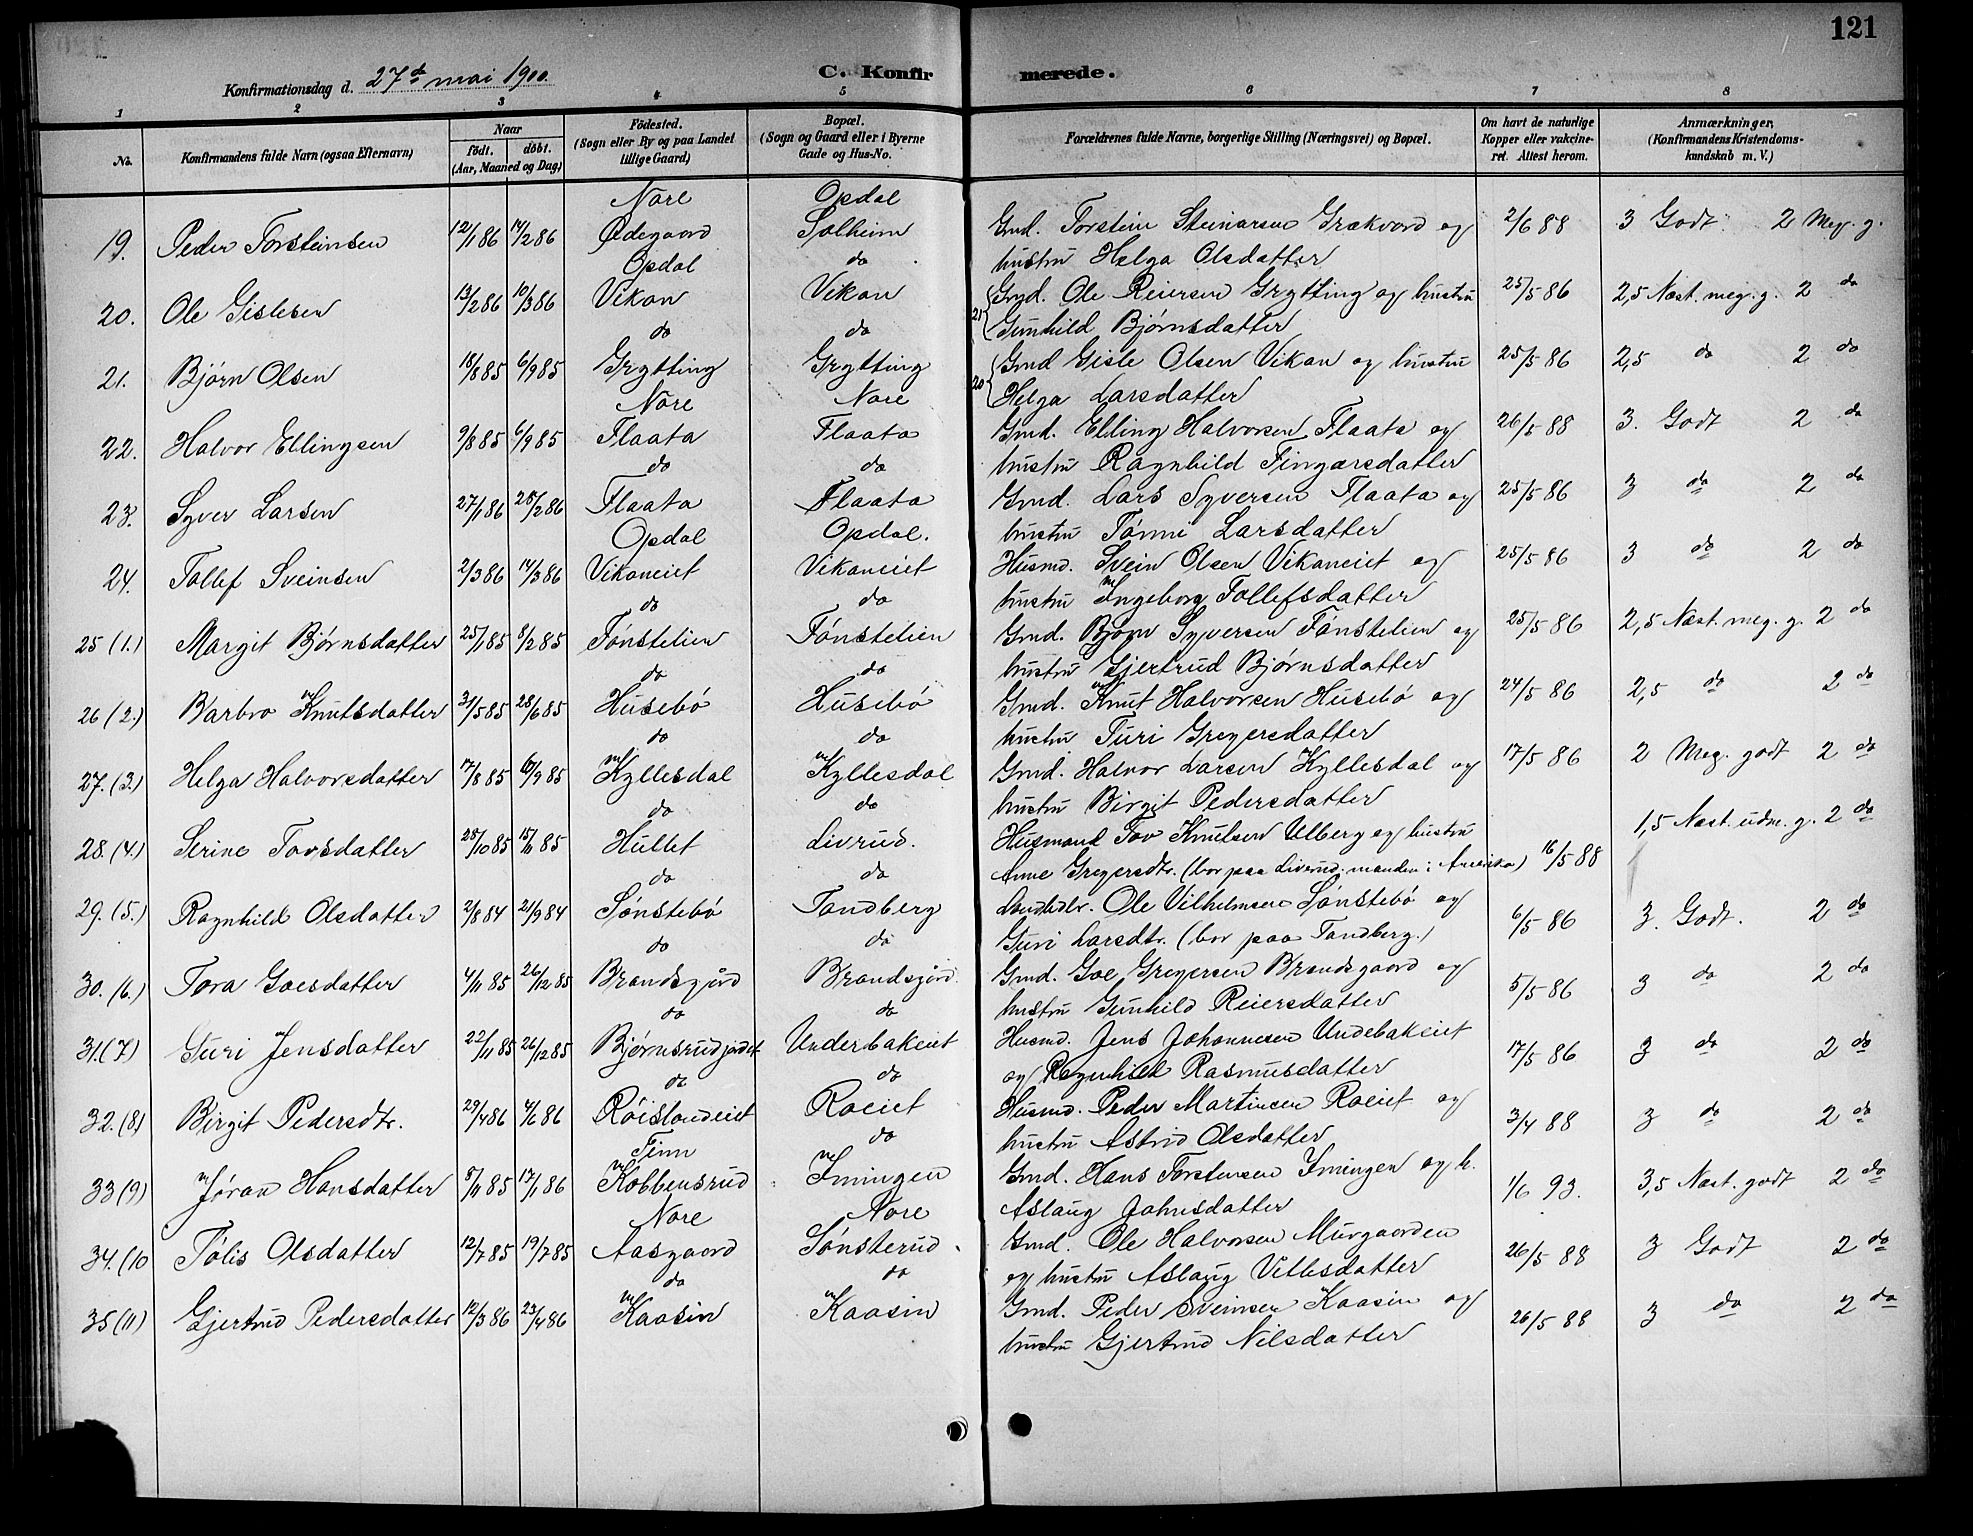 121
Konfirmationsdag d. 27de mai 1900.
C. Konfirmerede.
1 2 3 4 5 6 7 8
No. Konfirmandens fulde Navn (ogsaa Efternavn) Naar født. døbt. (Aar, Maaned og Dag) Födested. (Sogn eller By og paa Landet tillige Gaard) Bopæl. (Sogn og Gaard eller i Byerne Gade og Hus-No. Forældrenes fulde Navne, borgerlige Stilling (Næringsvei) og Bopæl. Om havt de naturlige Kopper eller vakcineret. Attest herom. Anmærkninger, (Konfirmandens Kristendomskundskab m. V.)
Nore Opdal
19. Peder Torsteinsen 12/1 86 14/2 86 Ødegaard Solheim Gmd. Torstein Steinarsen Grækvord og 2/6 88 3 Godt. 2 Meg. g.
Opdal do hustru Helga Olsdatter
20. Ole Gislesen 13/2 86 10/3 86 Vikan Vikan 21 Gmd. Ole Reiersen Grytting og hustru 25/5 86 2,5 Næst. meg. g. 2 do
do do Gunhild Bjørnsdatter
21. Bjørn Olsen 18/8 85 6/9 85 Grytting Grytting 20 Gmd Gisle Olsen Vikan og hustru 25/5 86 2,5 do 2 do
Nore Nore Helga Larsdatter
22. Halvor Ellingsen 9/8 85 6/9 85 Flaata Flaata Gmd. Elling Halvorsen Flaata og 26/5 88 3. Godt 2 do
do do hustru Ragnhild Fingarsdatter
23. Syver Larsen 27/1 86 28/2 86 Flaata Flaata Gmd. Lars Syversen Flaata og 25/5 86 3 do 2 do
Opdal Opdal. hustru Tønni Larsdatter
24. Tollef Sveinsen 2/3 86 14/3 86 Vikaneiet Vikaneiet Husmd. Svein Olsen Vikaneiet og 25/5 86 3 do 2 do
do do hustru Ingeborg Tollefsdatter
25 (1.) Margit Bjørnsdatter 25/1 85 8/2 85 Tønstelien Tønstelien Gmd. Bjørn Syversen Tønstelien og 25/5 86 2,5 Næst. meg. g. 2 do
do do hustru Gjertrud Bjørnsdatter
26 (2.) Barbro Knutsdatter 31/5 85 28/6 85 Husebö Husebö Gmd. Knut Halvorsen Husebö og 24/5 86 2,5 do 2 do
do do hustru Turi Gregersdatter
27. (3.) Helga Halvorsdatter 17/8 85 /9 85 Kyllesdal Kyllesdal Gmd. Halvor Larsen Kyllesdal og 17/5 86 2 Meg. godt 2 do
do do hustru Birgit Pedersdatter
28. (4.) Serine Tovsdatter 25/10 85 15/11 85 Hullet Livrud. Husmand Tov Knutsen Ulberg og hustru 1,5 Næst. udm. g. 2 do
do do Anne Gregersdtr. (bor paa Liverud. manden i Amerika) 16/5 88
29. (5.) Ragnhild Olsdatter 2/8 84 21/9 84 Sønstebö Tandberg Landhdlr. Ole Vilhelmsen Sønstebö og 6/5 86 3. Godt. 2 do
do do Guri Larsdtr. (bor paa Tandberg.)
30. (6.) Tora Goesdatter 4/11 85 26/12 85 Brandsgård Brandsgård. Gmd. Goe Gregersen Brandsgaard og 5/5 86 3 do 2 do
do do hustru Gunhild Reiersdatter
31. (7) Guri Jensdatter 22/11 85 26/12 85 Bjørnsrudjordet Underbakeiet Husmd. Jens Johannesen Undebakeiet 17/5 86 3 do 2 do
do do og Ragnhild Rasmusdatter
32. (8) Birgit Pedersdtr. 29/4 86 /6 86 Röislandeiet Roeiet Husmd. Peder Martinsen Roeiet og 3/4 88 3 do 2 do
Tinn do hustru Astrid Olsdatter
33 (9) Jøran Hansdatter 8/11 85 17/1 86 Kobbensrud Imingen Gmd. Hans Torstensen Imingen og h. 1/6 93. 3,5 Næst. godt 2 do
Nore Nore Aslaug Johnsdatter
34. (10 Tølis Olsdatter 12/7 85 19/7 85 Aasgaard Sønsterud Gmd. Ole Halvorsen Murgaarden 26/5 88 3 Godt 2 do
do do og hustru Aslaug Vetlesdatter
35 (11) Gjertrud Pedersdatter 12/3 86 23/4 86 Kaasin Kaasin Gmd. Peder Sveinsen Kaasin og 26/5 88 3 do 2 do
hustru Gjertrud Nilsdatter